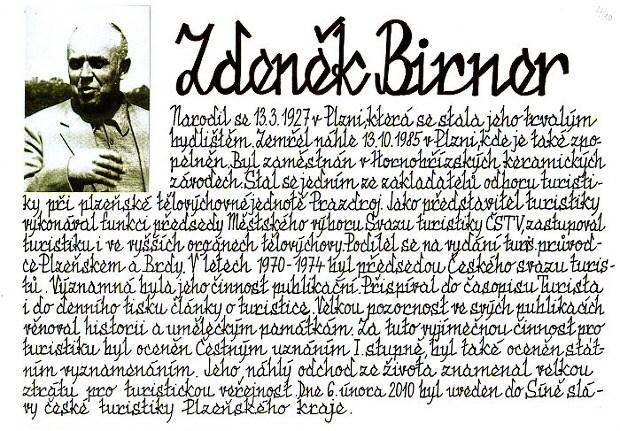 Zdeněk Birner
Narodil se 13.3.1927 v Plzni, která se stala jeho trvalým
bydlištěm. Zemřel náhle 13.10.1985 v Plzni, kde je také zpo-
pelněn. Byl zaměstnán v Hornobřízských keramických
závodech. Stal se jedním ze zakladatelů odboru turisti-
ky při plzeňské tělovýchovné jednotě Prazdroj. Jako představitel turistiky
vykonával funkci předsedy Městského výboru Svazu turistiky ČSTV, zastupoval
turistiku i ve vyšších orgánech tělovýchovy. Podílel se na vydání turis. průvod-
ce Plzeňskem a Brdy. V letech 1970-1974 byl předsedou Českého svazu turis-
tů. Významná byla jeho činnost publikační. Přispíval do časopisu Turista
i do denního tisku články o turistice. Velkou pozornost ve svých publikacích
věnoval historii a uměleckým památkám. Za tuto vyjímečnou činnost pro
turistiku byl oceněn Čestným uznáním I. stupně, byl také oceněn stát-
ním vyznamenáním. Jeho náhlý odchod ze života znamenal velkou
ztrátu pro turistickou veřejnost. Dne 6. února 2010 byl uveden do Síně slá-
vy české turistiky Plzeňského kraje.